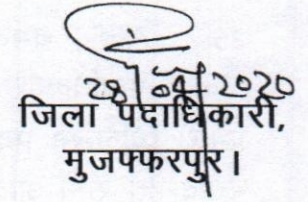 28/04/2020
जिला पदाधिकारी,
मुजफ्फरपुर।